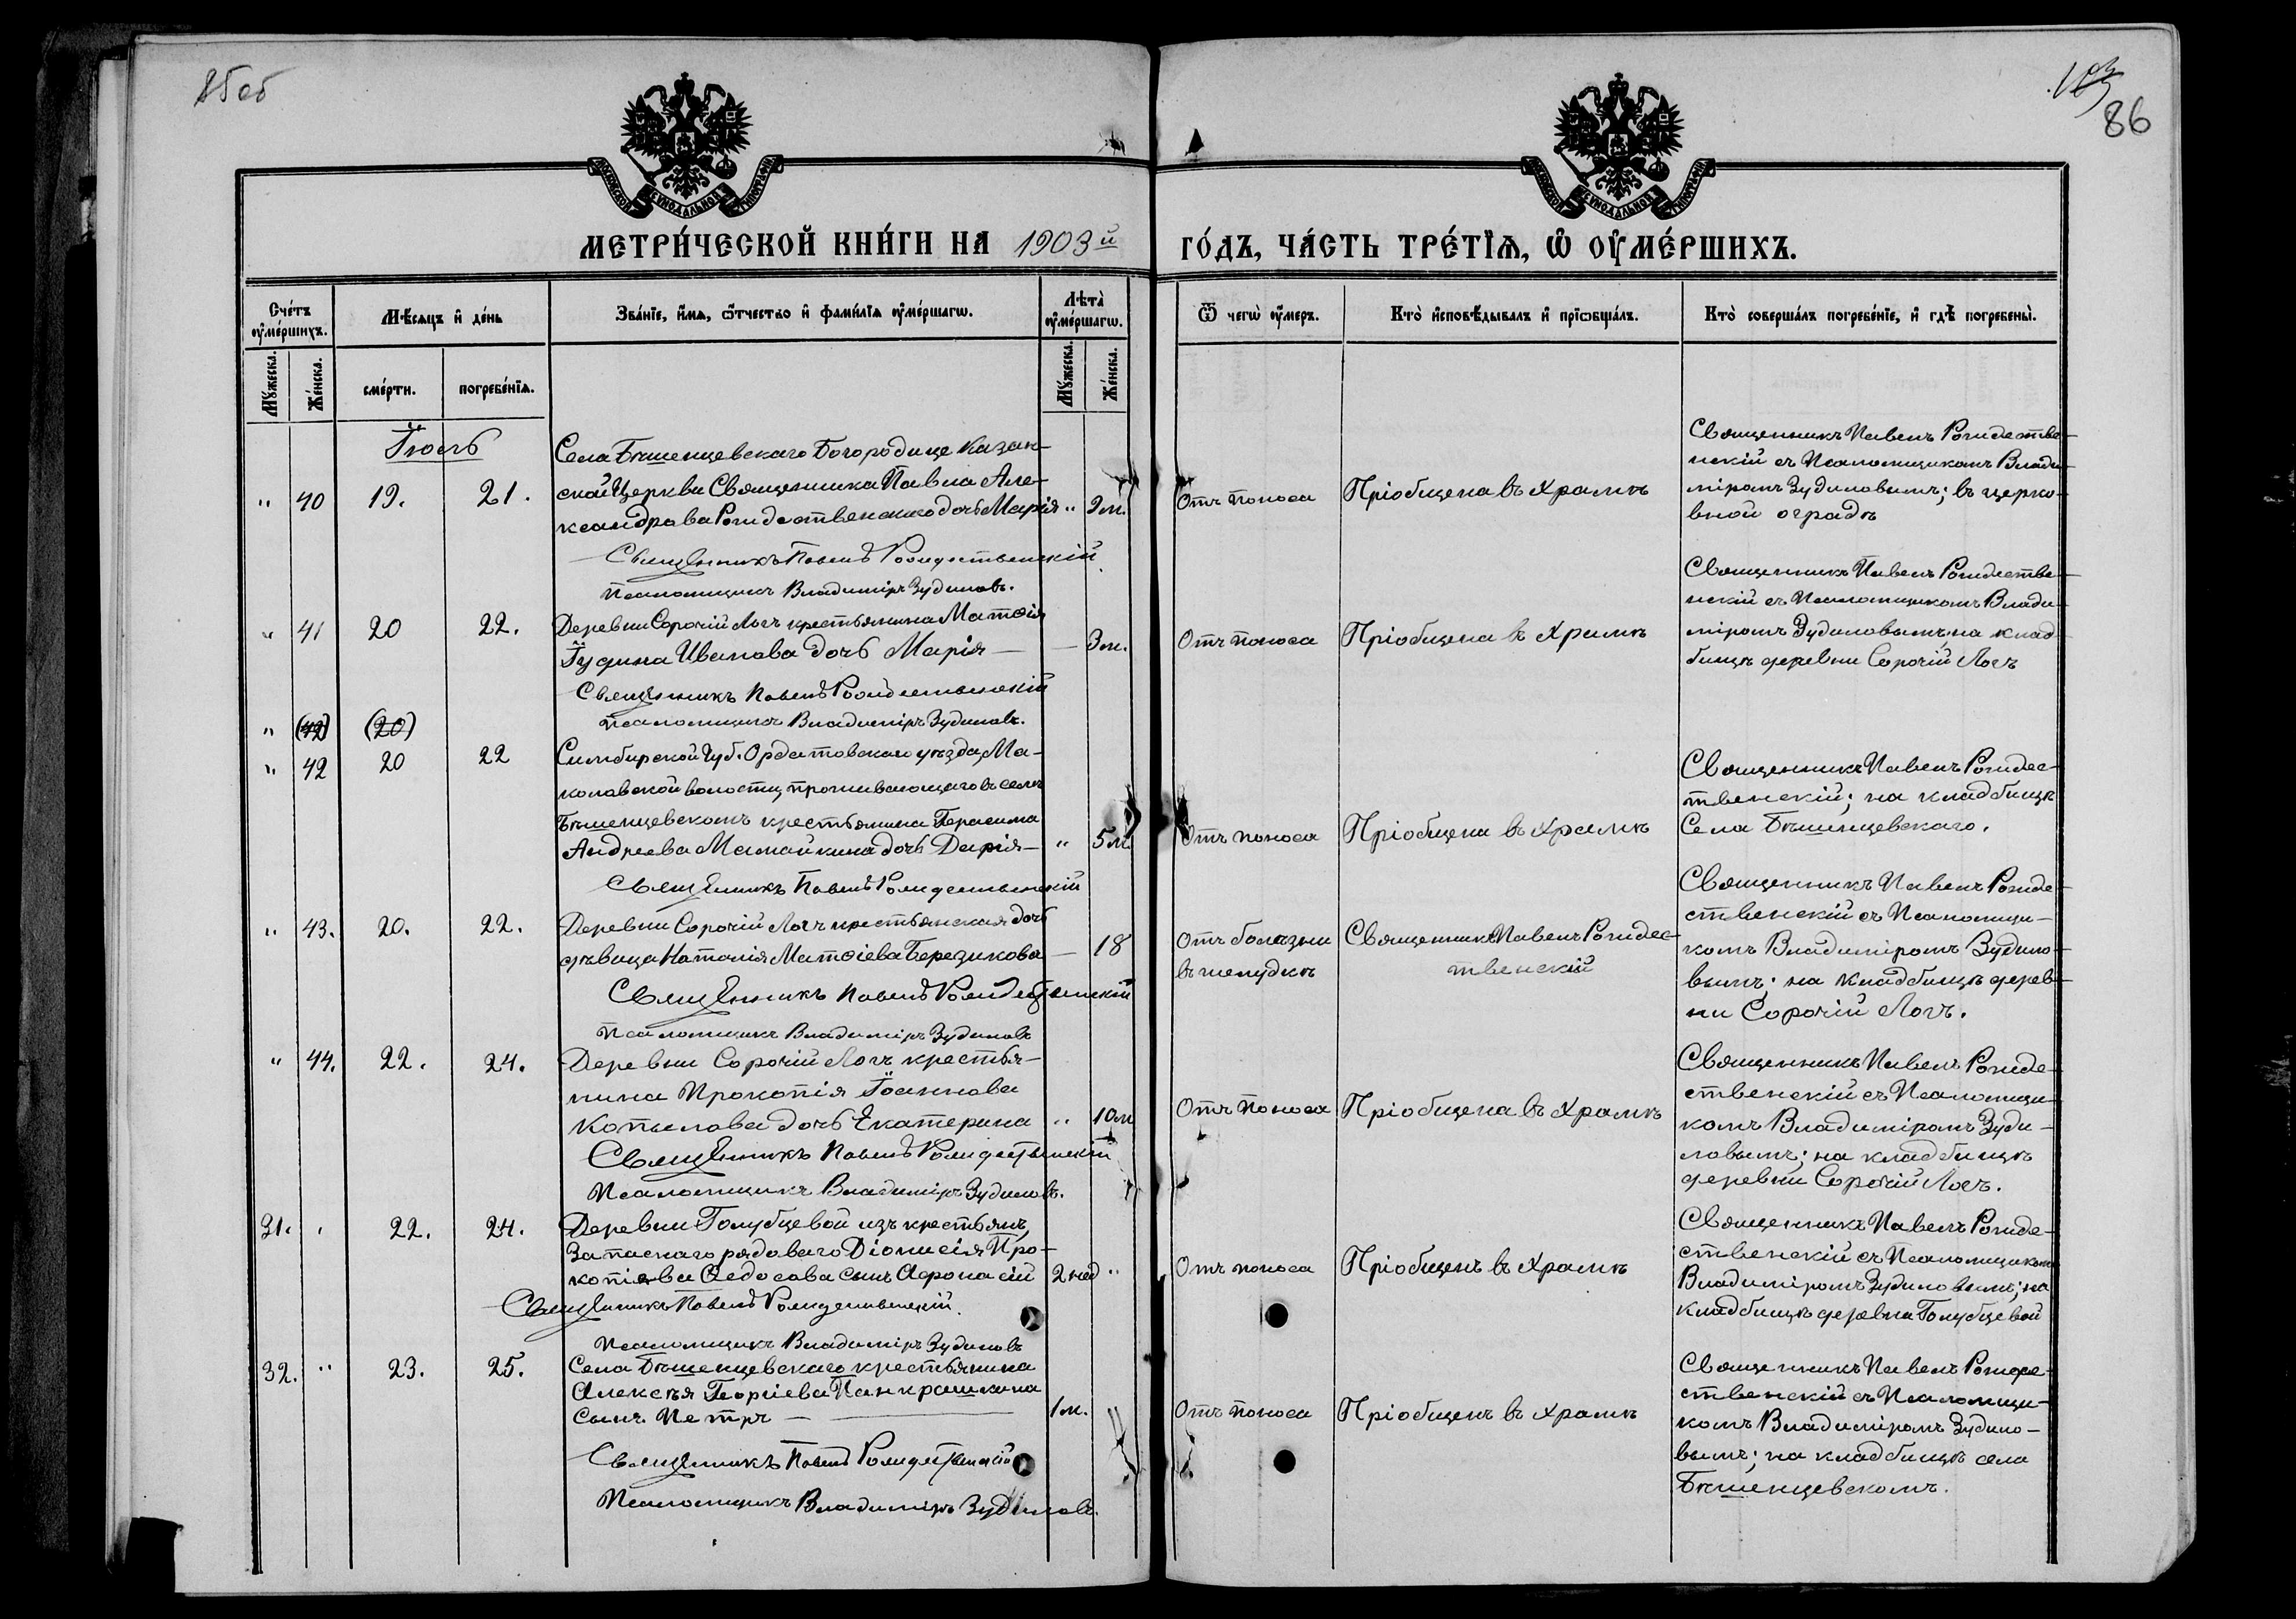 85об
103
86
МЕТРИ́ЧЕСКОЙ КНИ́ГИ НА 1903й
ГО́ДЪ, ЧА́СТЬ ТРЕ́ТІѦ, Ѡ ОУМЕ́РШИХЪ.
Сче́тъ оуме́ршихъ.
Мꙋ́жеска.
Же́нска.
Мѣ́сѧцъ и де́нь
сме́рти.
погребе́нїѧ.
Зва́нїе, и́мѧ, ѻ́тчество и фами́лїѧ оуме́ршагѡ.
Лѣта̀ оуме́ршагѡ.
Мꙋ́жеска.
Же́нска.
Ѿ чегѡ̀ оу́меръ.
Кто̀ исповѣ́дывалъ и прїѻбща́лъ.
Кто̀ соверша́лъ погребе́нїе, и гдѣ̀ погребены̀.
Іюль
" 40 19. 21.
Села Бѣшенцевскаго Богородице Казан-
ской Церкви Священника Павла Але-
ксандрова Рождественскаго дочь Марія " 3 м.
Священникъ Павелъ Рождественскій
Псаломщикъ Владиміръ Зудиловъ.
Отъ поноса
Пріобщена въ храмѣ
Священникъ Павелъ Рождестве-
нскій съ Псаломщикомъ Влади-
міромъ Зудиловымъ; въ церко-
вной оградѣ
" 41 20 22.
Деревни Сорочій Логъ крестьянина Матѳія
Іудина Иванова дочь Марія — — 3 м.
Священникъ Павелъ Рождественскій
Псаломщикъ Владиміръ Зудиловъ.
Отъ поноса
Пріобщена въ храмѣ
Священникъ Павелъ Рождестве-
нскій съ Псаломщикомъ Влади-
міромъ Зудиловымъ; на клад-
бищѣ деревни Сорочій Логъ
" (42) (20)
" 42 20 22
Симбирской Губ. Ордатовскаго уѣзда, Ма-
коловской волости, проживающаго въ селѣ
Бѣшенцевскомъ крестьянина Герасима
Андреева Мамайкина дочь Дарія — " 5 м.
Священникъ Павелъ Рождественскій
Отъ поноса
Пріобщена въ храмѣ
Священникъ Павелъ Рождес-
твенскій; на кладбищѣ
Села Бѣшенцевскаго.
" 43. 20. 22.
Деревни Сорочій Логъ крестьянская дочь
дѣвица Наталія Матѳіева Березикова — 18
Священникъ Павелъ Рождественскій
Псаломщикъ Владиміръ Зудиловъ
Отъ болѣзни
въ желудкѣ
Священникъ Павелъ Рождес-
твенскій
Священникъ Павелъ Рожде-
ственскій съ Псаломщи-
комъ Владиміромъ Зудило-
вымъ; на кладбищѣ дерев-
ни Сорочій Логъ.
" 44. 22. 24.
Деревни Сорочій Логъ крестья-
нина Прокопія Іоаннова
Копылова дочь Екатерина " 10 м
Священникъ Павелъ Рождественскій
Псаломщикъ Владиміръ Зудиловъ.
Отъ поноса
Пріобщена въ храмѣ
Священникъ Павелъ Рожде-
ственскій съ Псаломщи-
комъ Владиміромъ Зуди-
ловымъ; на кладбищѣ
деревни Сорочій Логъ.
31. " 22. 24.
Деревни Голубцевой изъ крестьянъ,
Запаснаго рядоваго Діонисія Про-
копіева Ѳедосова сынъ Аѳонасій 2 нед "
Священникъ Павелъ Рождественскій.
Псаломщикъ Владиміръ Зудиловъ
Отъ поноса
Пріобщенъ въ храмѣ
Священникъ Павелъ Рожде-
ственскій съ Псаломщикомъ
Владиміромъ Зудиловымъ; на
кладбищѣ деревни Голубцевой
32. " 23. 25.
Села Бѣшенцевскаго крестьянина
Алексѣя Георгіева Панкрашкина
сынъ Петръ — 1 м.
Священникъ Павелъ Рождественскій
Псаломщикъ Владиміръ Зудиловъ.
Отъ поноса
Пріобщенъ въ храмѣ
Священникъ Павелъ Рожде-
ственскій съ Псаломщи-
комъ Владиміромъ Зудило-
вымъ; на кладбищѣ села
Бѣшенцевскомъ.